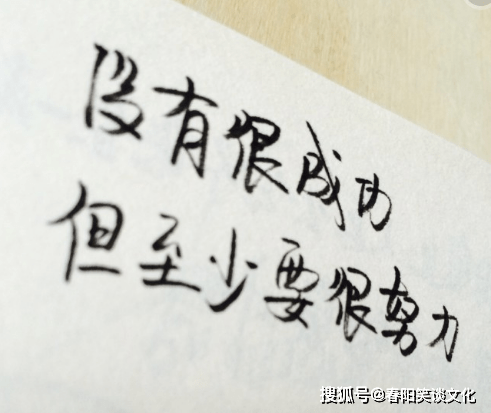 没有很成功
但至少要很努力
搜狐号@春阳笑谈文化